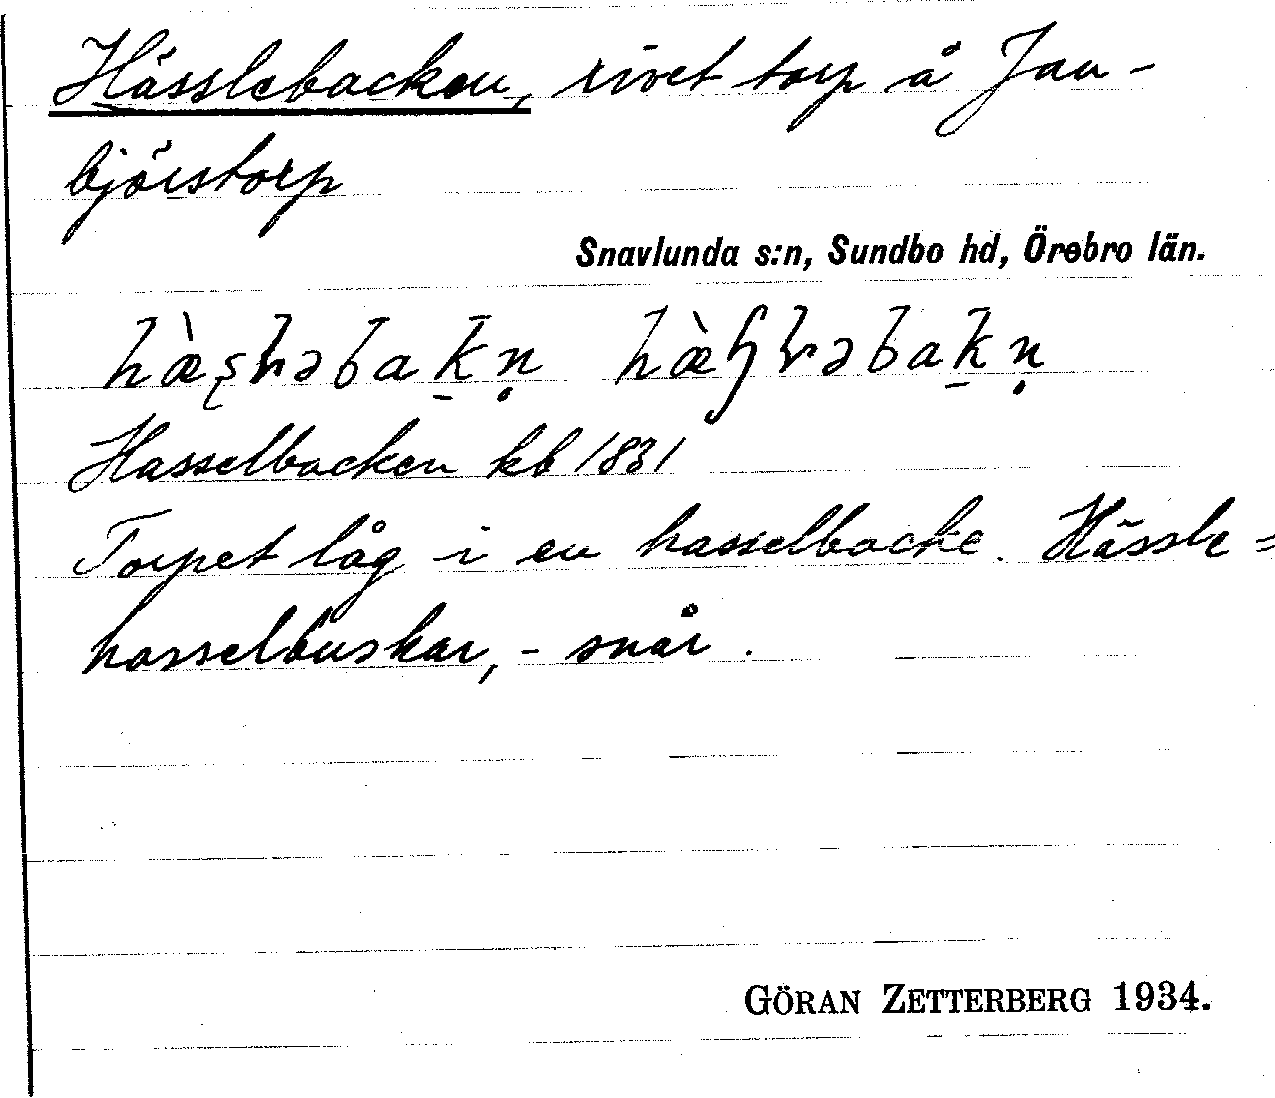 Hässlebacken, rivet torp å Jan-
björstorp
Snavlunda s:n, Sundbo hd, Örebro län.
Hasselbacken kb 1831
Torpet låg i en hasselbacke. Hässle =
hasselbuskar, - snår.
GÖRAN ZETTERBERG 1934.